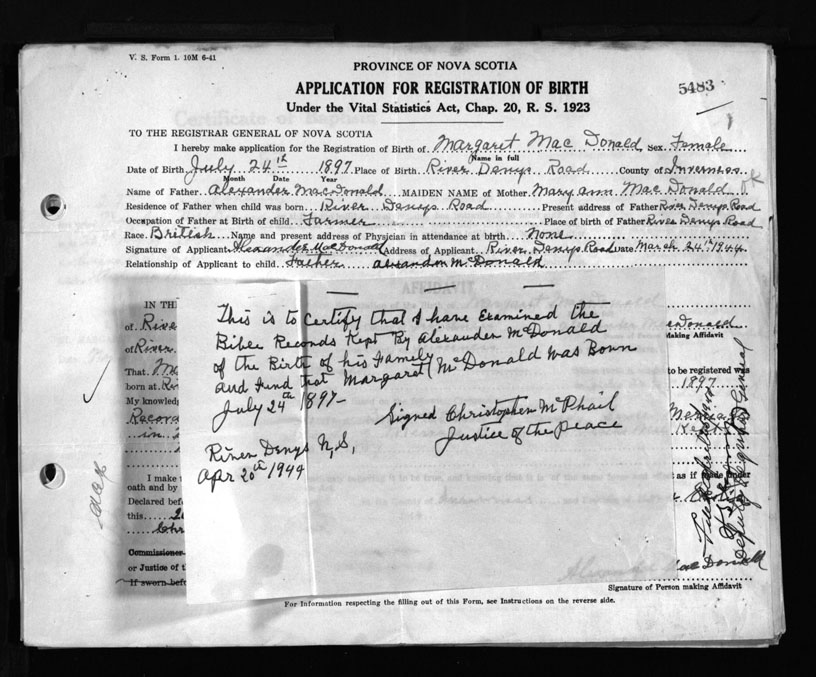 V. S. Form 1. 10M 6-41
PROVINCE OF NOVA SCOTIA
APPLICATION FOR REGISTRATION OF BIRTH
5483
Under the Vital Statistics Act, Chap. 20, R. S. 1923
TO THE REGISTRAR GENERAL OF NOVA SCOTIA
I hereby make application for the Registration of Birth of Margaret Mac Donald Sex Female
Name in full
Date of Birth July 24th 1897 Place of Birth River Denys Road County of Inverness
Month Date Year
Name of Father Alexander MacDonald MAIDEN NAME of Mother Mary ann Mac Donald
Residence of Father when child was born River Denys Road Present address of Father River Denys Road
Occupation of Father at Birth of child Farmer Place of birth of Father River Denys Road
Race British Name and present address of Physician in attendance at birth None
Signature of Applicant Alexander MacDonald Address of Applicant River Denys Road Date March 24th 1944
Relationship of Applicant to child Father alexander McDonald
AFFIDAVIT
IN TH
of Rive
of River
That
born at Ri
My knowledg
Record
in
I make
oath and by
Declared befo
this
Chr
Commissioner
or Justice of t
If sworn befo
This is to Certify that I have Examined the
Bible Records Kept By Alexander McDonald
of the Birth of his Family
and fund that Margaret McDonald was Born
July 24th 1897-
Signed Christopher McPhail
Justice of the peace
River Denys N,S,
Apr 20th 1944
acDonald
Making Affidavit
to be registered was
1897
as if made under
Deputy Registrar General
Mac Donald
Signature of Person making Affidavit
For Information respecting the filling out of this Form, see Instructions on the reverse side.